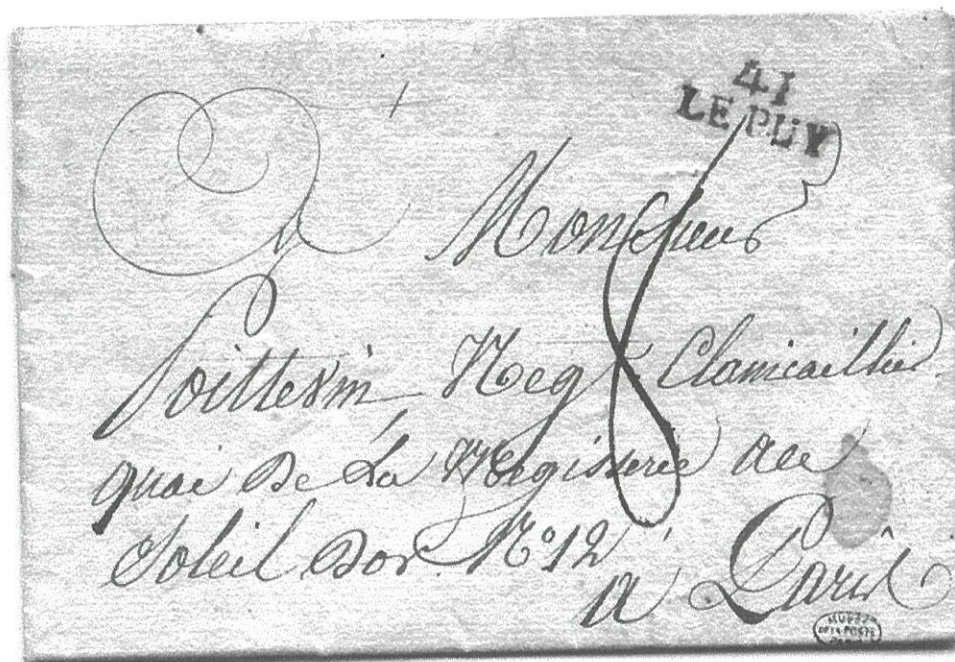 41
LE PUY
A Monsieur
Poitterin Neg^t Clamcaillier
quai De La Megisserie au
Soleil Dor N° 12
a Paris
MUSÉE
DE LA POSTE
8